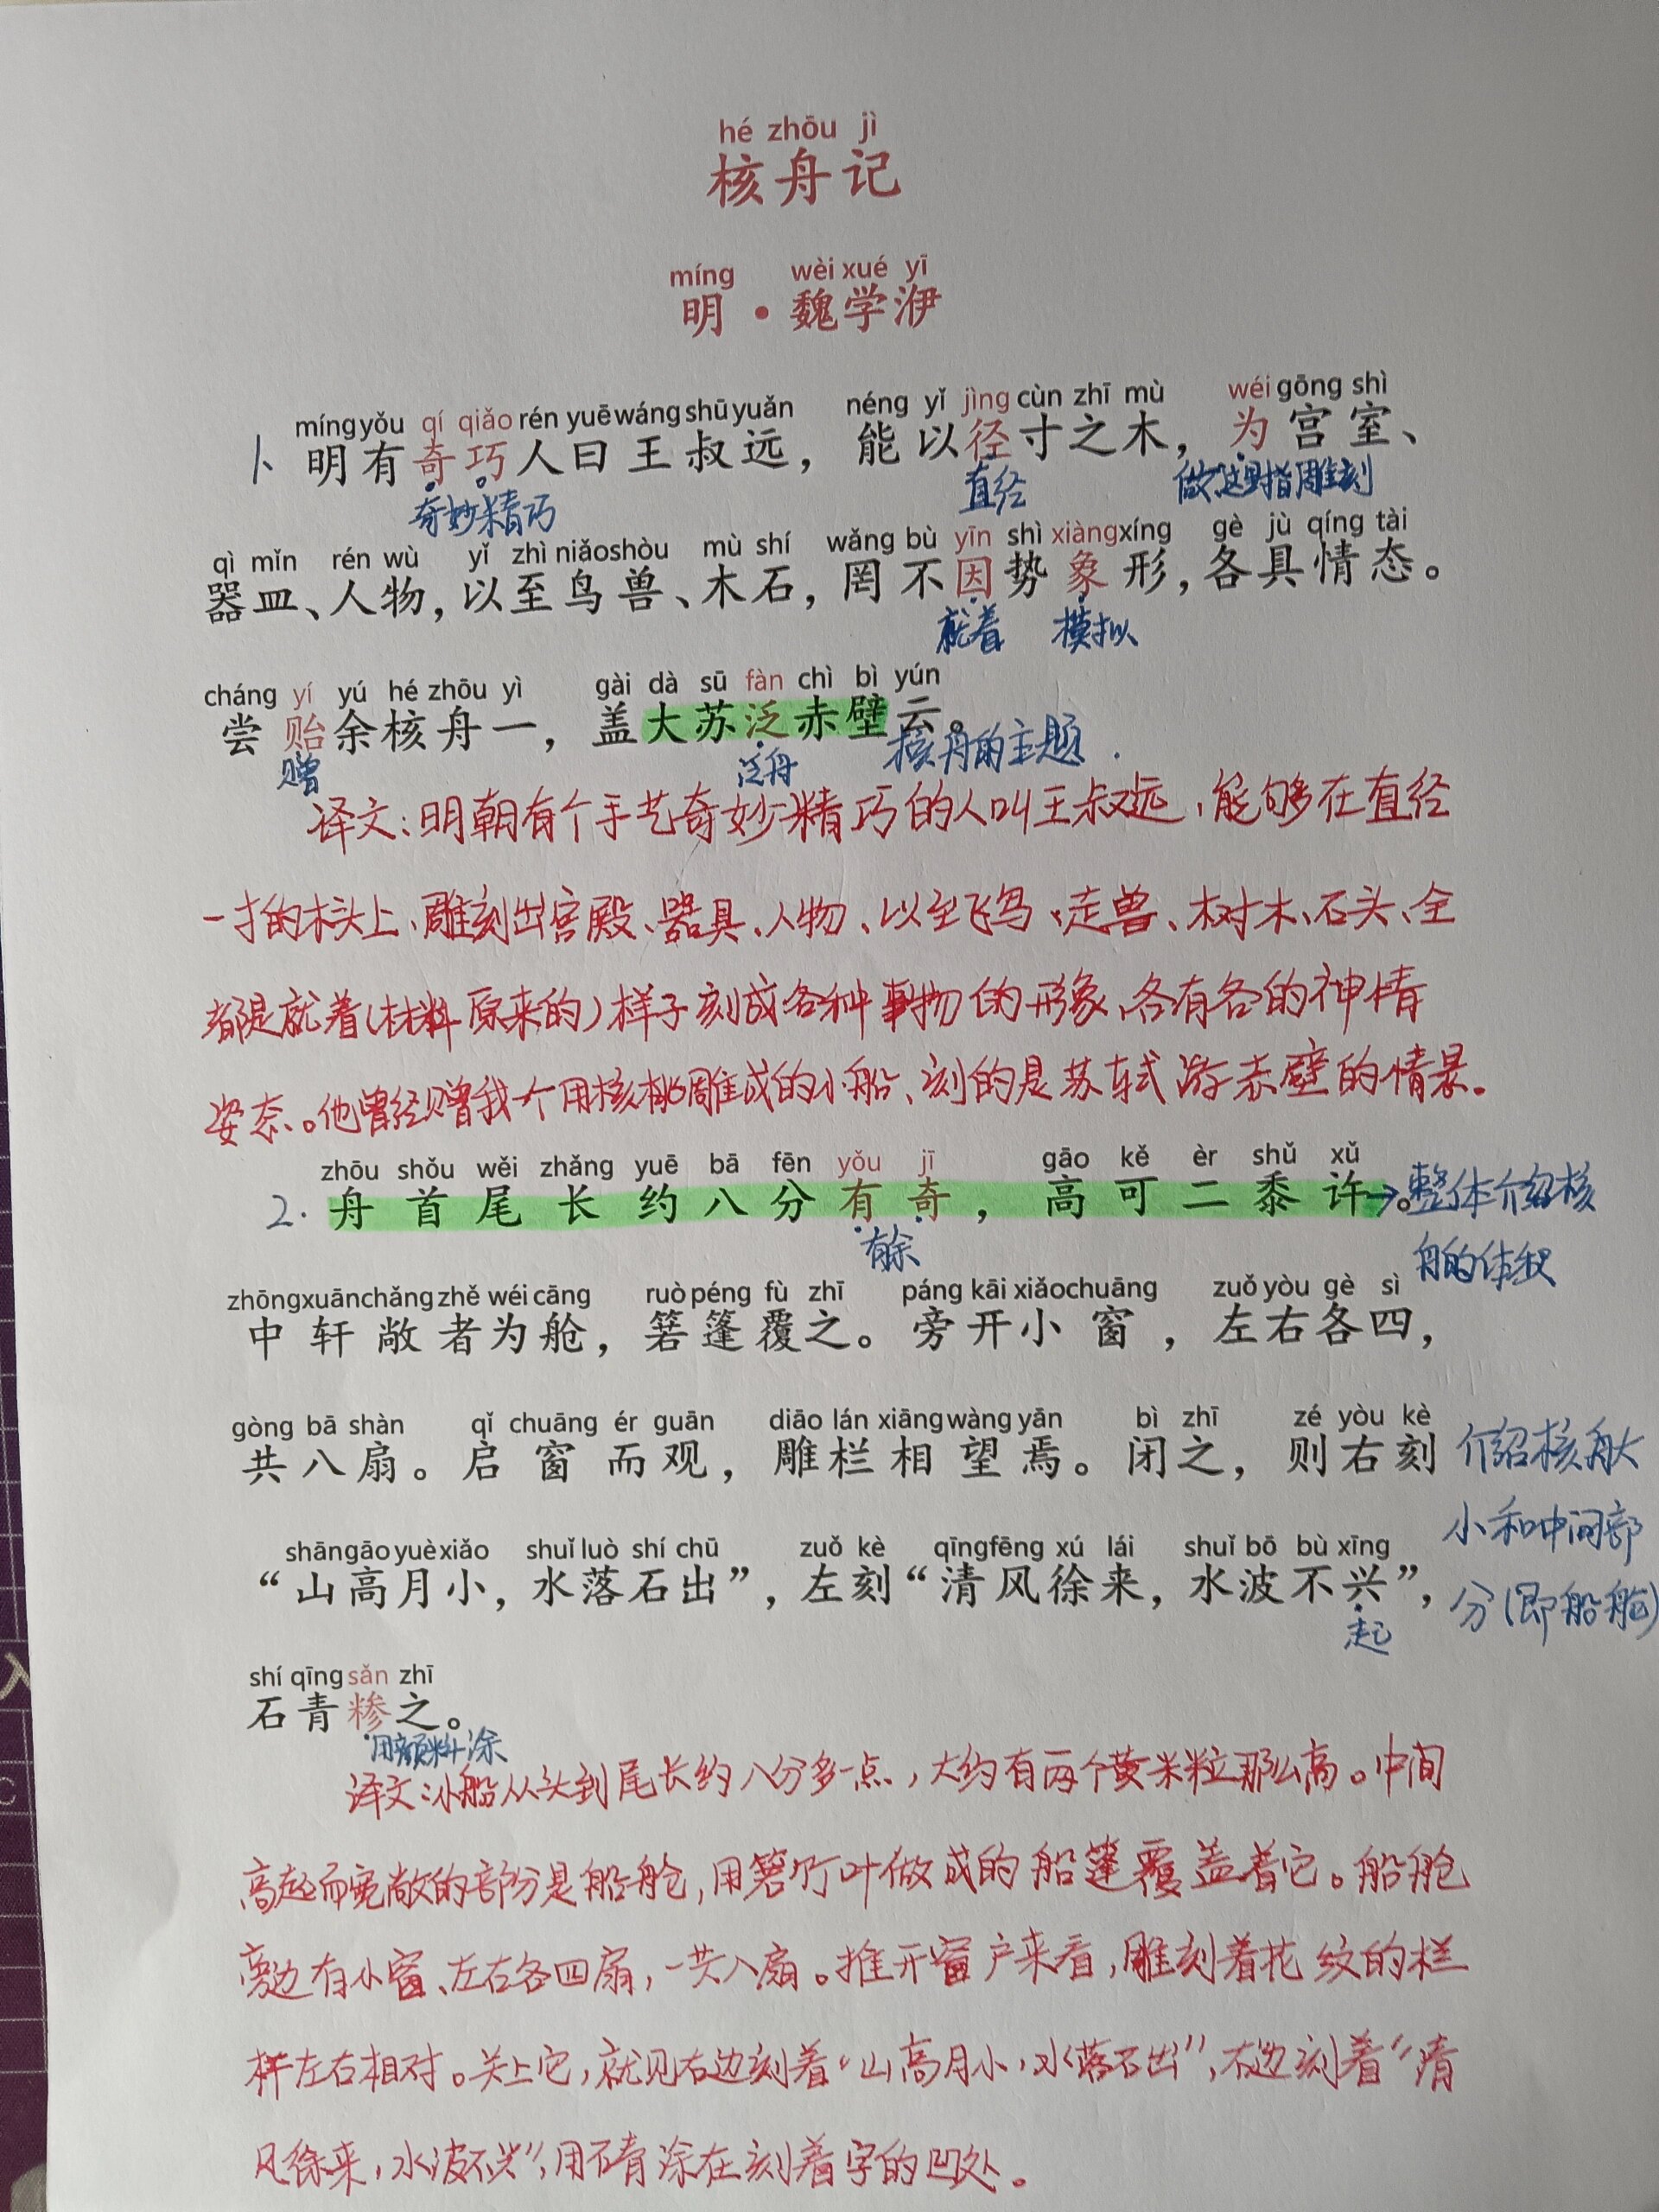 hé zhōu jì
核舟记
míng wèi xué yī
明·魏学洢
míng yǒu qí qiǎo rén yuē wáng shū yuǎn néng yǐ jìng cùn zhī mù wéi gōng shì
1、明有奇巧人曰王叔远，能以径寸之木，为宫室、
奇妙精巧 直径 做,这里指雕刻
qì mǐn rén wù yǐ zhì niǎo shòu mù shí wǎng bù yīn shì xiàng xíng gè jù qíng tài
器皿、人物，以至鸟兽、木石，罔不因势象形，各具情态。
就着 模拟
cháng yí yú hé zhōu yì gài dà sū fàn chì bì yún
尝贻余核舟一，盖大苏泛赤壁云。
赠 泛舟 核舟的主题.
译文：明朝有个手艺奇妙精巧的人叫王叔远，能够在直经
一寸的木头上、雕刻出宫殿、器具、人物、以至飞鸟、走兽、树木、石头、全
都是就着(材料原来的)样子刻成各种事物的形象、各有各的神情
姿态。他曾经赠我一个用核桃雕成的小船、刻的是苏轼游赤壁的情景。
zhōu shǒu wěi zhǎng yuē bā fēn yǒu jī gāo kě èr shǔ xǔ
2.舟首尾长约八分有奇，高可二黍许。→整体介绍核
有余 舟的体积
zhōng xuān chǎng zhě wéi cāng ruò péng fù zhī páng kāi xiǎo chuāng zuǒ yòu gè sì
中轩敞者为舱，箬篷覆之。旁开小窗，左右各四，
gòng bā shàn qǐ chuāng ér guān diāo lán xiāng wàng yān bì zhī zé yòu kè
共八扇。启窗而观，雕栏相望焉。闭之，则右刻 介绍核舟大
shān gāo yuè xiǎo shuǐ luò shí chū zuǒ kè qīng fēng xú lái shuǐ bō bù xīng 小和中间部
“山高月小，水落石出”，左刻“清风徐来，水波不兴”， 分(即船舱)
起
shí qīng sǎn zhī
石青糁之。
用颜料涂
译文：小船从头到尾长约八分多一点，大约有两个黄米粒那么高。中间
高起而宽敞的部分是船舱，用箬竹叶做成的船篷覆盖着它。船舱
旁边有小窗、左右各四扇，一共八扇。推开窗户来看，雕刻着花纹的栏
杆左右相对。关上它，就见右边刻着“山高月小，水落石出”，左边刻着“清
风徐来，水波不兴”，用石青涂在刻着字的凹处。